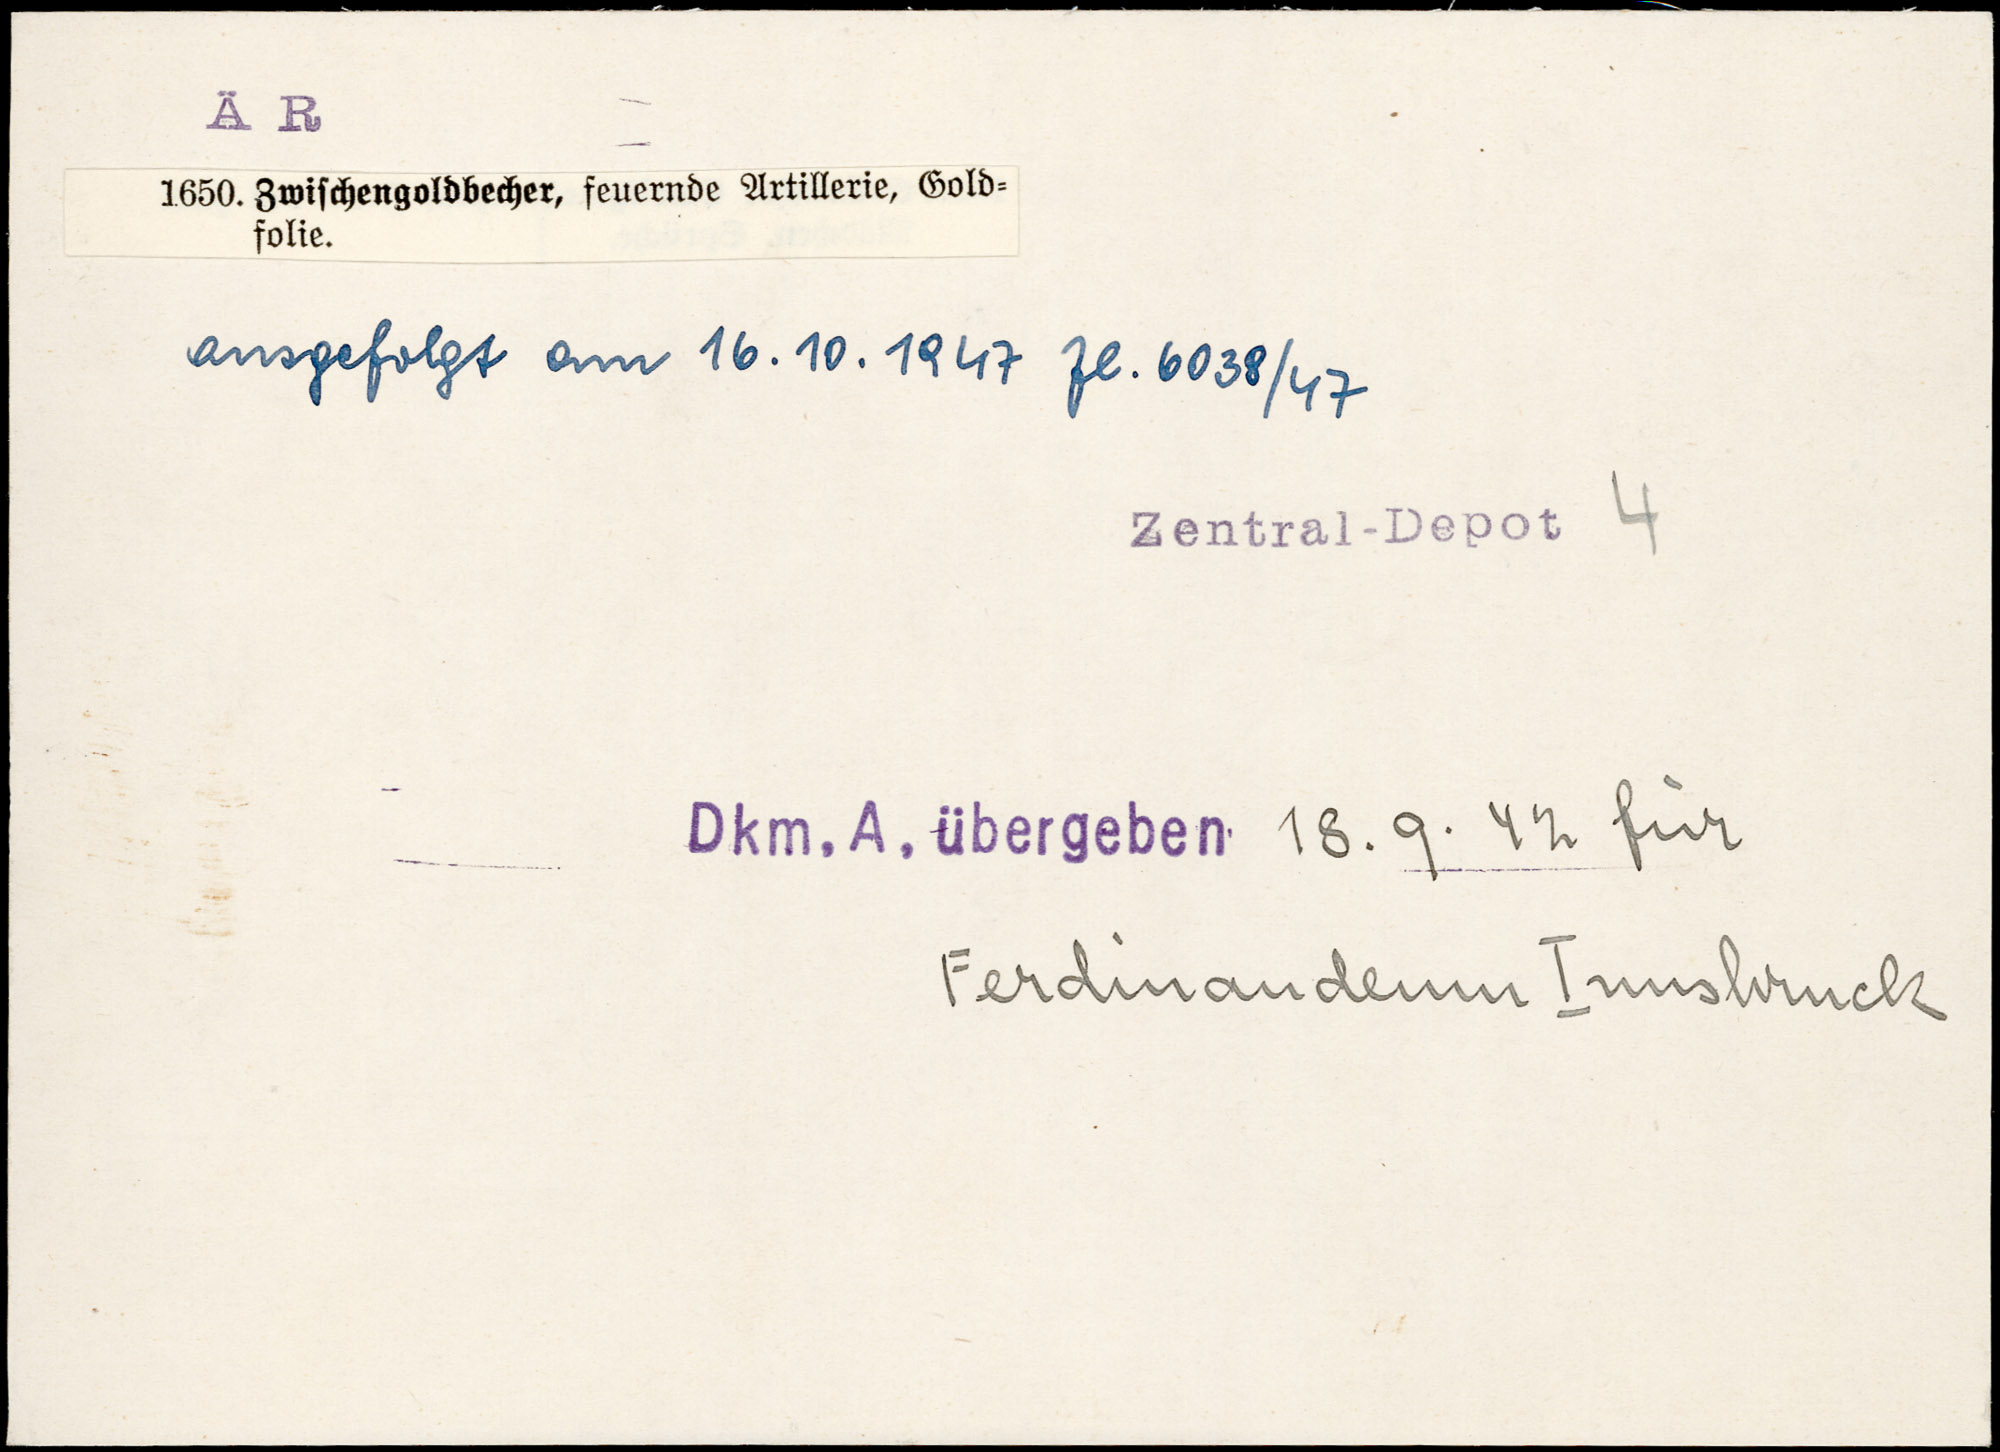 Ä R
1650. Zwischengoldbecher, feuernde Artillerie, Gold-
folie.
ausgefolgt am 16.10.1947 Zl. 6038/47
Zentral-Depot 4
Dkm. A. übergeben 18.9.42 für
Ferdinandeum Innsbruck